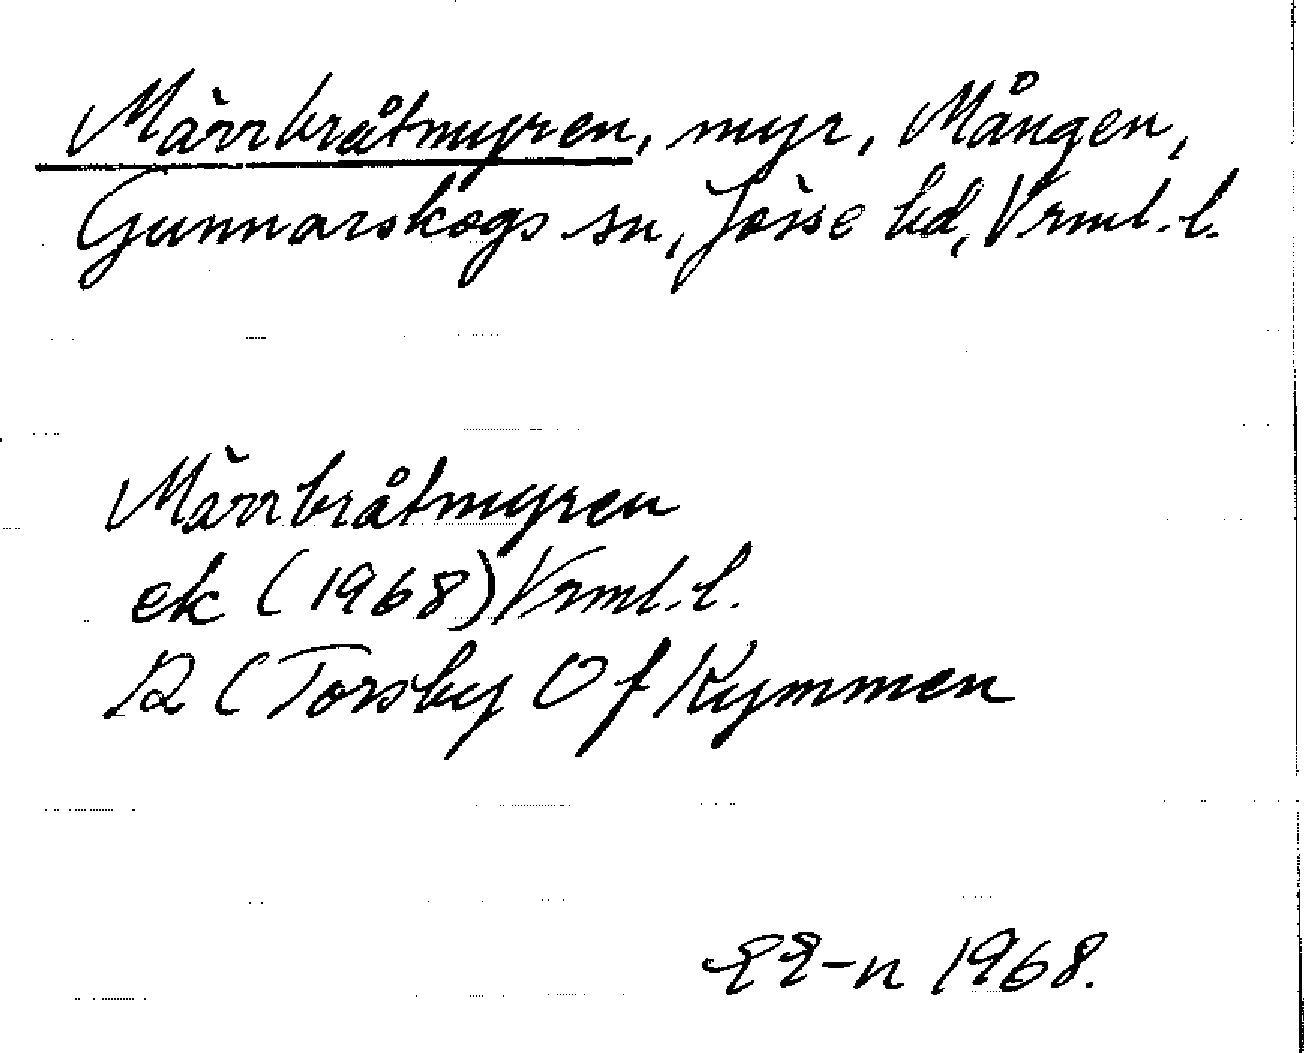 Märrbråtmyren, myr, Mången,
Gunnarskogs sn, Jösse hd, Vrml. l.
Märrbråtmyren
ek (1968) Vrml. l.
12 C Torsby 0 f Kymmen
1968.